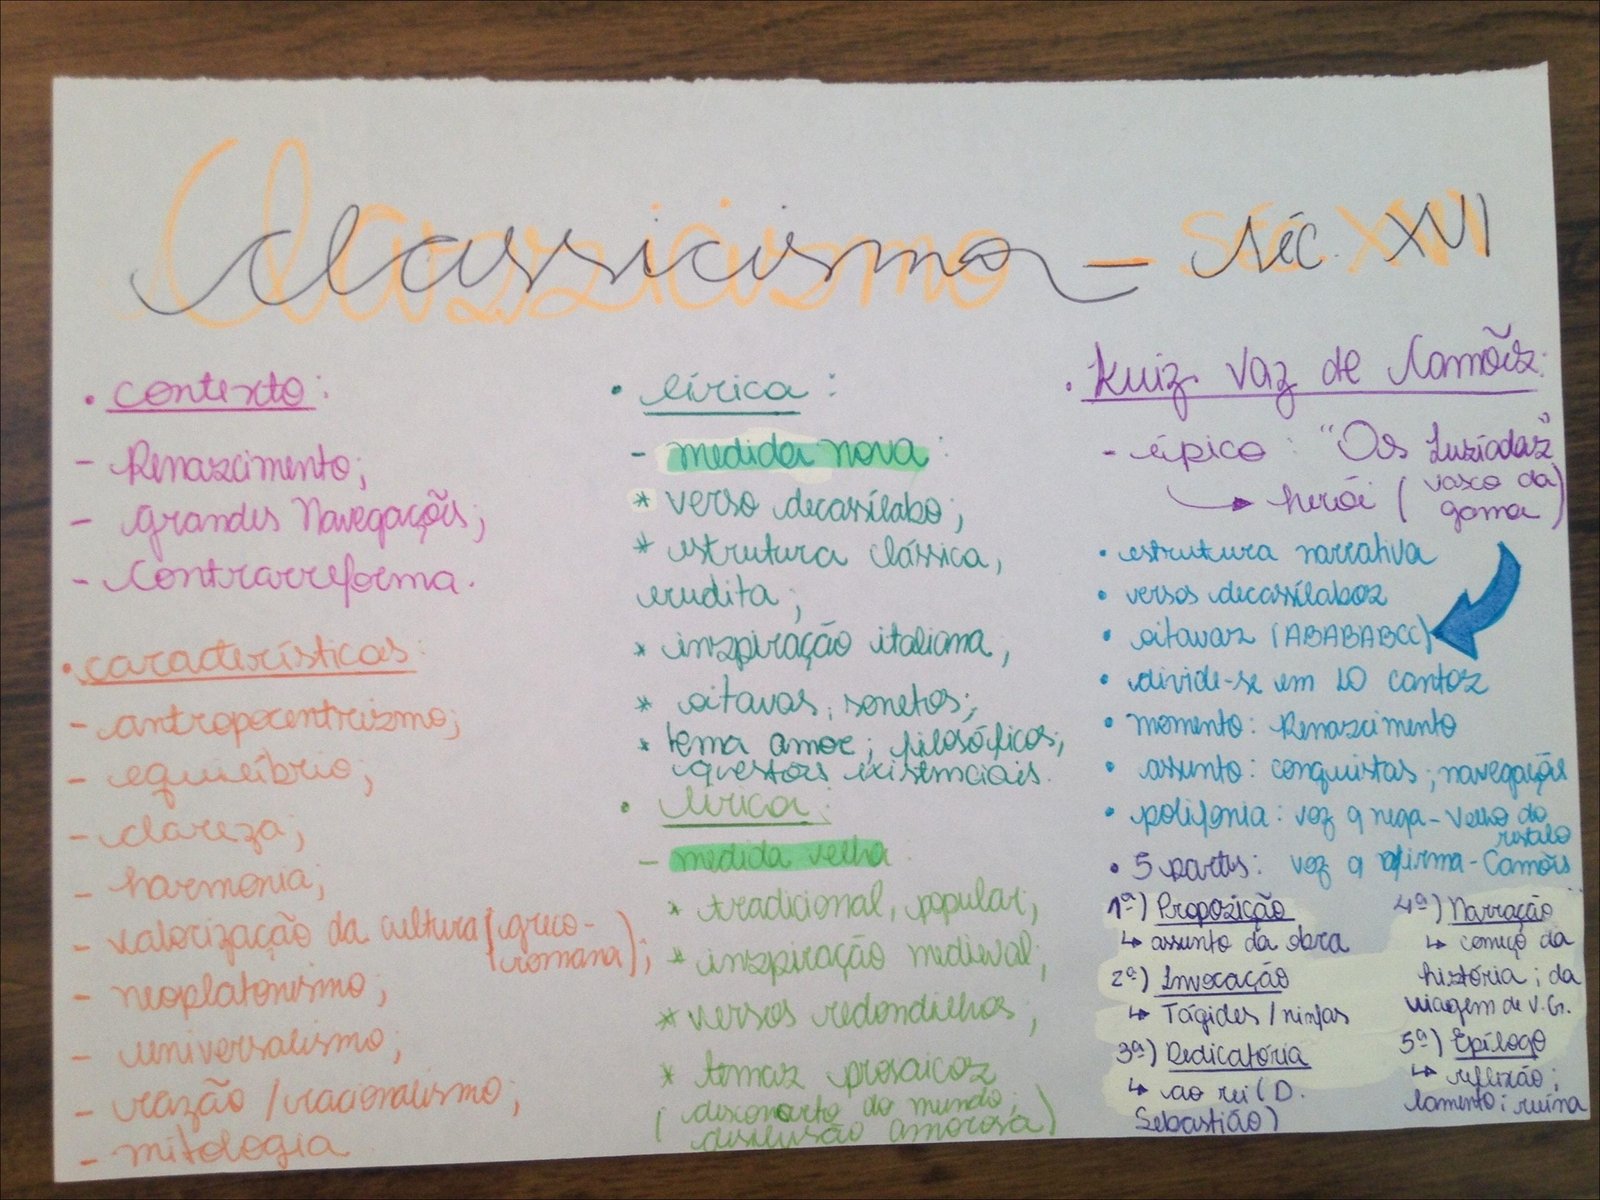 Classicismo - Séc. XVI
• Contexto:
- Renascimento;
- Grandes Navegações;
- Contrarreforma.
• características:
- antropocentrismo;
- equilíbrio;
- clareza;
- harmonia;
- valorização da cultura (greco-
romana);
- neoplatonismo;
- universalismo;
- razão / racionalismo;
- mitologia
• Lírica:
- medida nova:
* verso decassílabo;
* estrutura clássica,
erudita;
* inspiração italiana;
* oitavas, sonetos;
* tema amor; filosóficos;
questões existenciais.
• lírica:
- medida velha
* tradicional, popular;
* inspiração medieval;
* versos redondilhos;
* temas prosaicos
(desconcerto do mundo;
desilusão amorosa)
• Luiz Vaz de Camões:
- épico: "Os Lusíadas"
herói (vasco da
gama)
• estrutura narrativa
• versos decassílabos
• oitavas (ABABABCC)
• divide-se em 10 cantos
• momento: Renascimento
• assunto: conquistas; navegações
• polifonia: voz q nega - Velho do
restelo
voz q afirma - Camões
• 5 partes:
1ª) Proposição
↳ assunto da obra
2ª) Invocação
↳ Tágides / ninfas
3ª) Dedicatória
↳ ao rei (D.
Sebastião)
4ª) Narração
↳ começo da
história; da
viagem de V.G.
5ª) Epílogo
↳ reflexão;
lamento; ruína